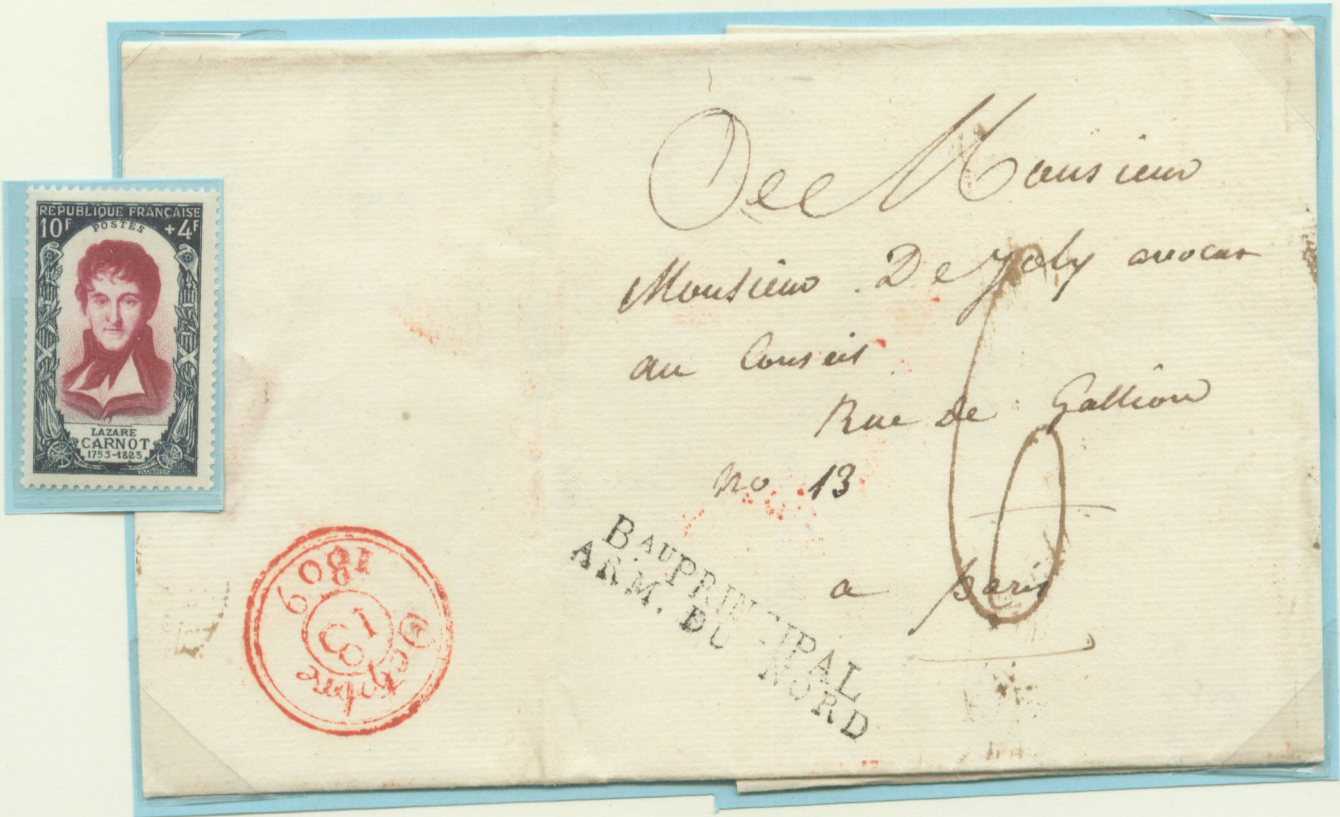 RÉPUBLIQUE FRANÇAISE
10F +4F
POSTES
LAZARE
CARNOT
1753-1823
A Monsieur
Monsieur De Joly avocat
au Conseil
Rue de Gallion
No 13
a paris
6
Bau PRINCIPAL
ARM. DU NORD
Octobre
13
1809